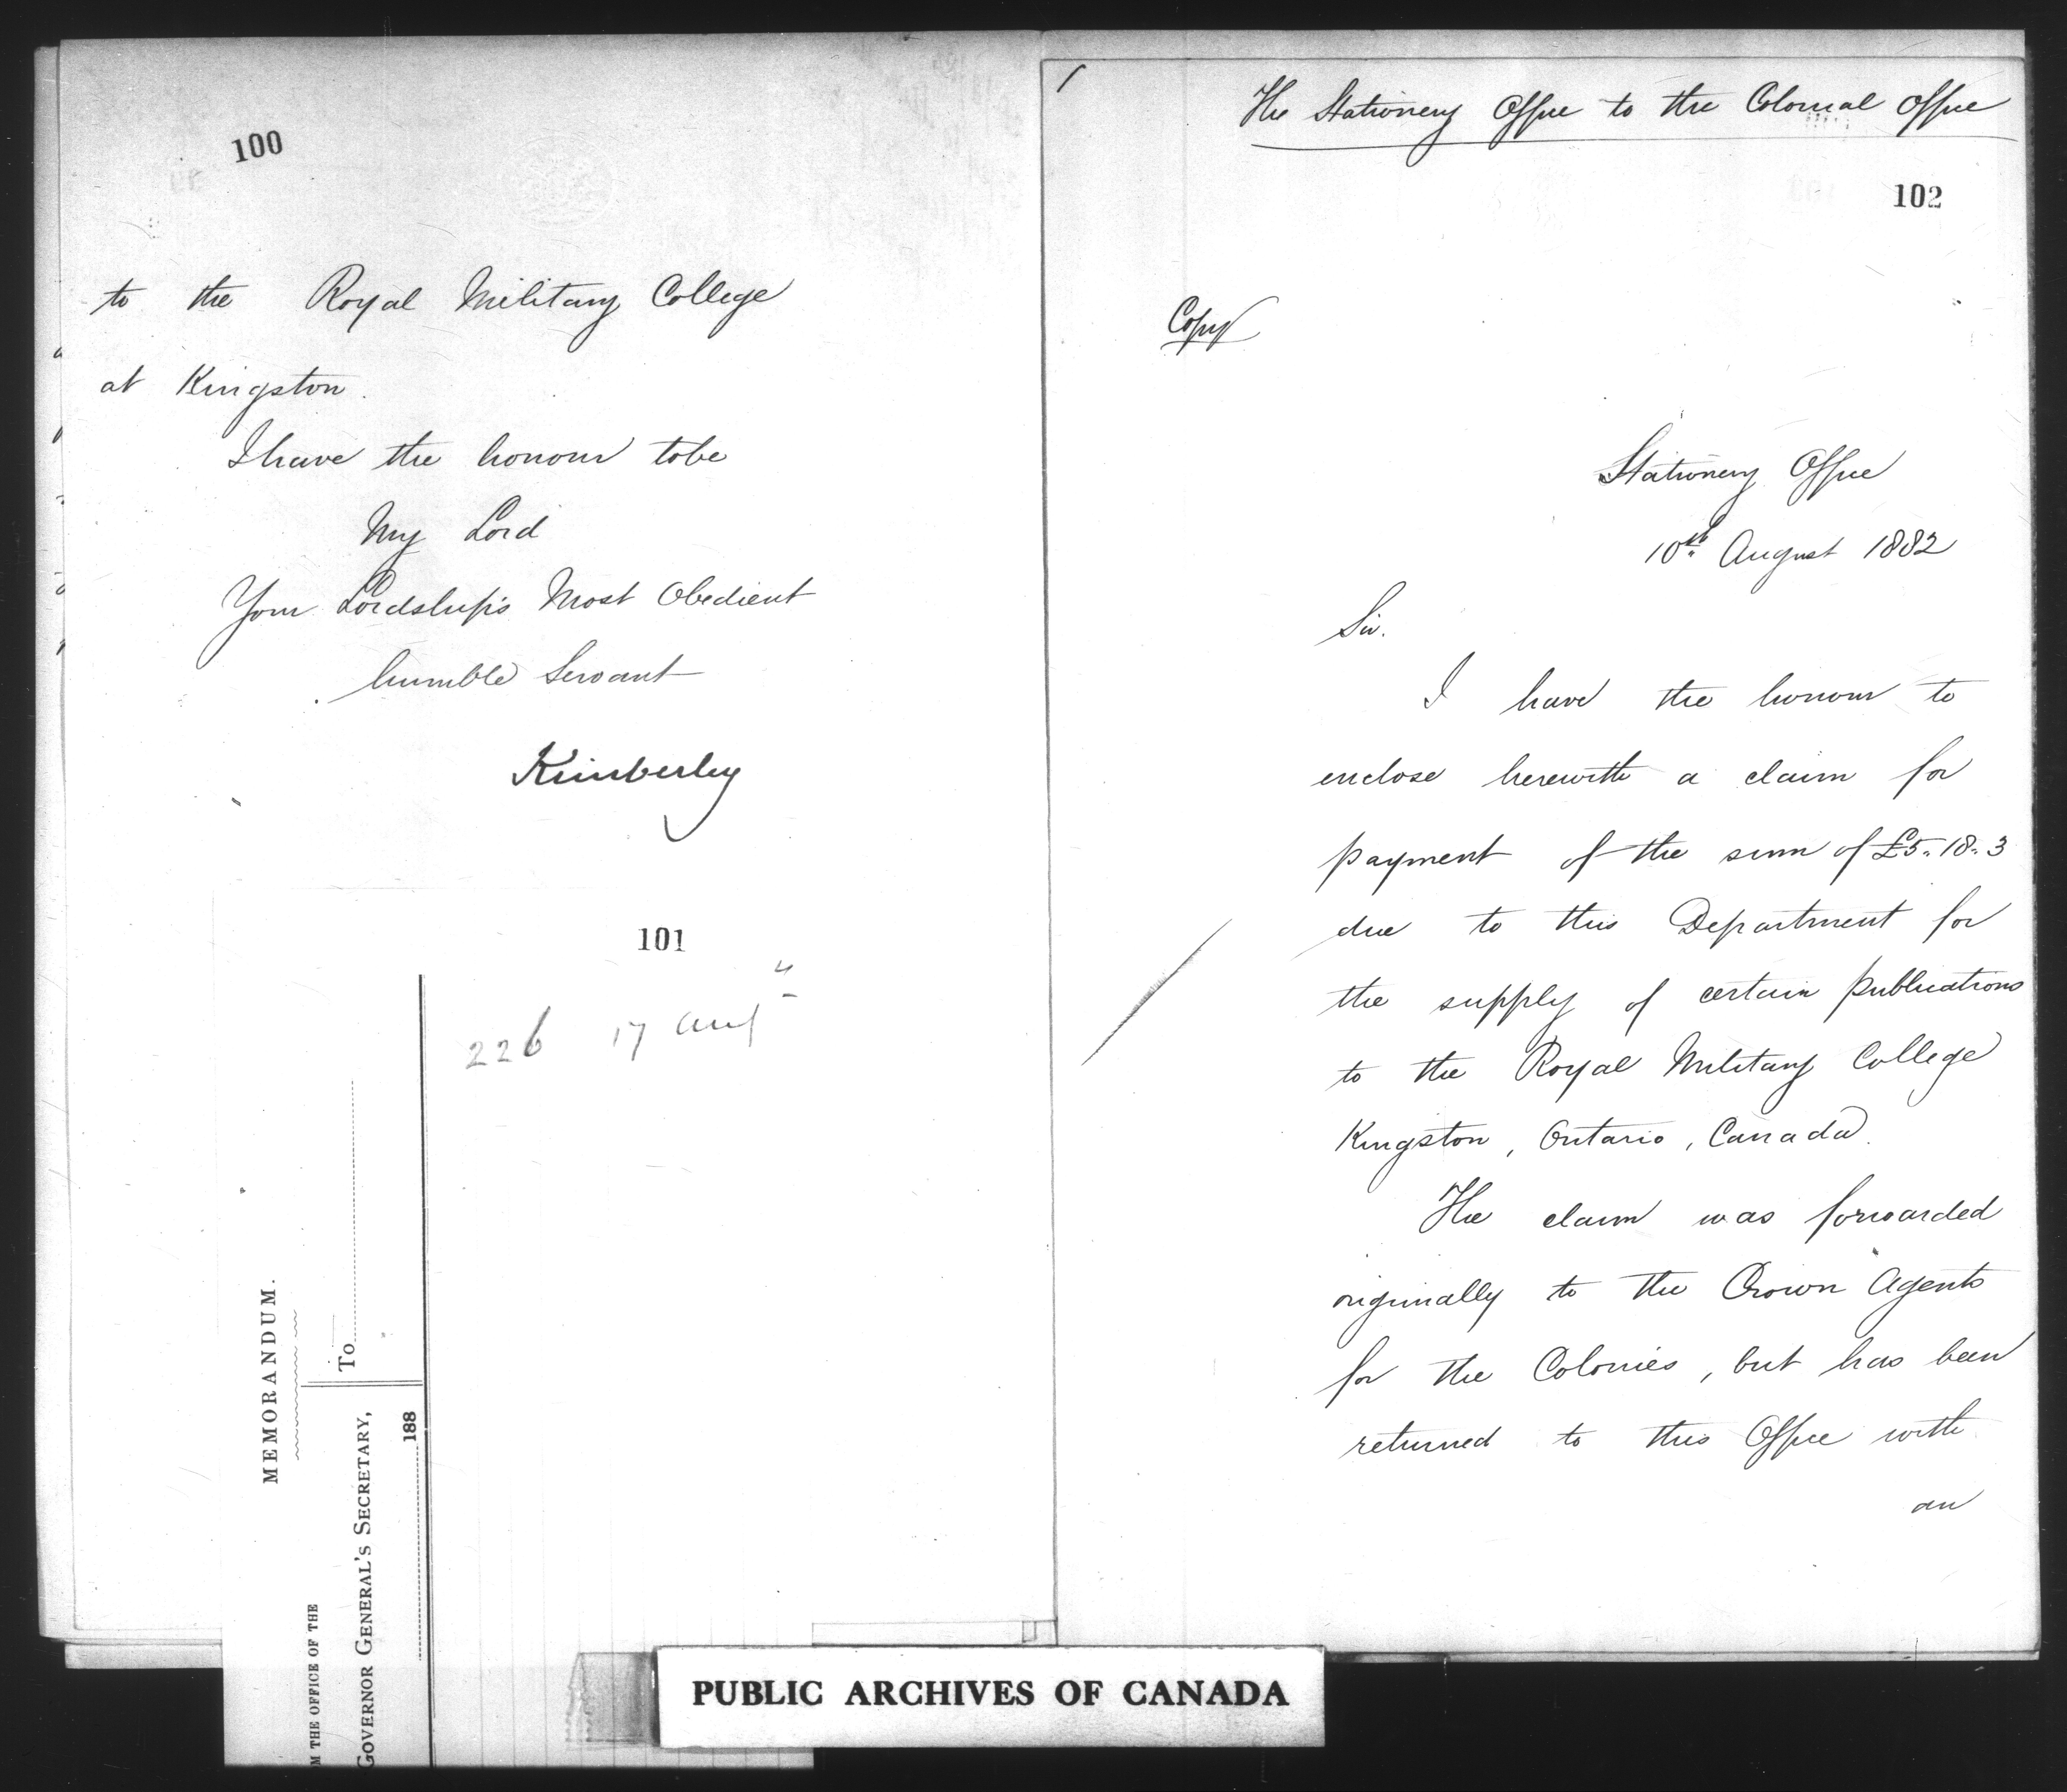 100
to the Royal Military College
at Kingston.
I have the honour to be
My Lord
Your Lordship's Most Obedient
humble Servant
Kimberley
101
226 17 Aug
MEMORANDUM.
To
M THE OFFICE OF THE
GOVERNOR GENERAL'S SECRETARY,
188
The Stationery Office to the Colonial Office
102
Copy
Stationery Office
10th August 1882
Sir.
I have the honour to
enclose herewith a claim for
payment of the sum of £5.18.3
due to this Department for
the supply of certain publications
to the Royal Military College
Kingston, Ontario, Canada.
The claim was forwarded
originally to the Crown Agents
for the Colonies, but has been
returned to this Office with
an
PUBLIC ARCHIVES OF CANADA